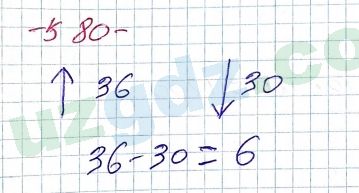 -5 80-
↑ 36 ↓ 30
36-30=6
uzgdz.com